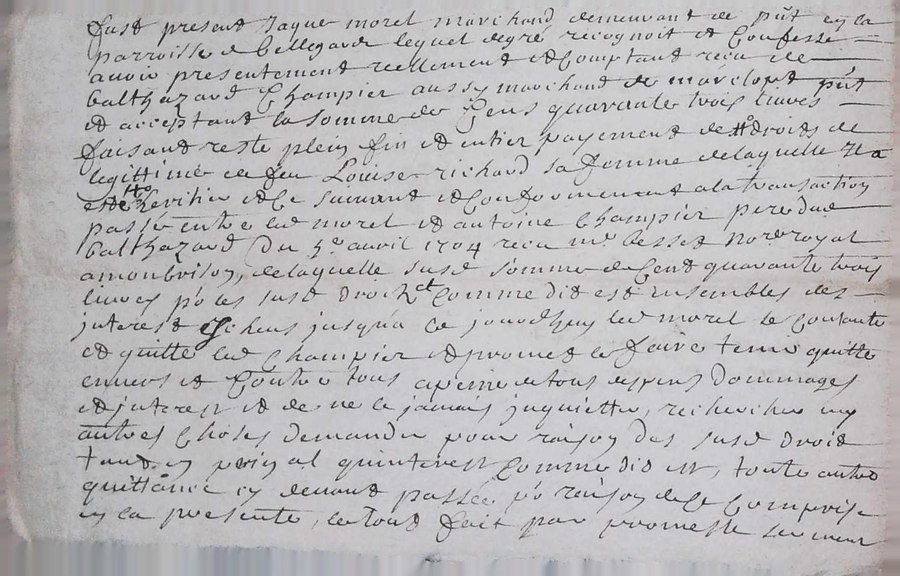 fust present Jaque morel marchand demeurant de pnt en la
parroisse de bellegarde lequel de gré recognoit et Confesse
avoir presentement reellement et Comptant receu de
balthazard Champier aussy marchand de pnt
et acceptant la somme de Cens quarante trois livres
faisant reste plein fin et entier payement des droits de
legittime de feu Louise richard sa femme de laquelle Il a
esté heritier et Ce suivant et Conformement a la transaction
passé entre led morel et antoine Champier pere dud
balthazard du avril 1704 receu me besset nore royal
a montbrison, de laquelle susd somme de Cent quarante trois
livres po les susd droicts Comme dit est ensembles des
interest Escheus jusqua ce jourdhuy led morel se Contante
et quitte led Champier et promet le faire tenir quitte
envers et Contre tous a peine de tous despens Dommages
et interest et de ne le jamais inquietter, rechercher ny
autres Choses demander pour raison des susd droit
tant en prinal quinterest Comme dit est, toute autre
quittance cy devant passée po raison de Ce Comprise
en la presente, le tout fait par promesse serment